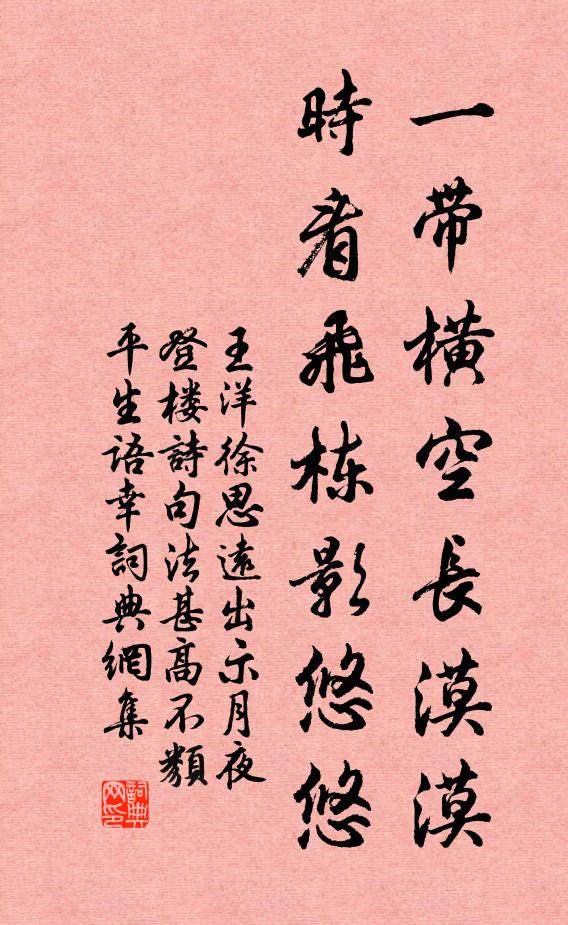 一帶橫空長漠漠
時看飛棟影悠悠
王洋徐思遠出示月夜
登楼詩句法甚高不類
平生语幸詞典網集
詞典网印